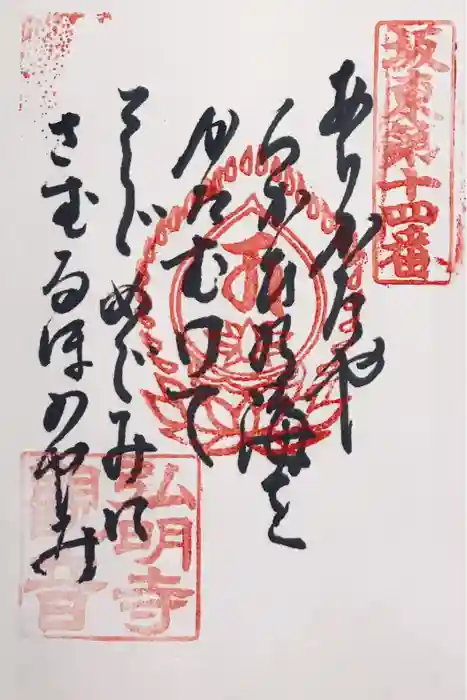 坂東第十四番
ありがたや
ちかひの海を
かたむけて
そゝぐめぐみに
さむるほのやみ
弘明寺
觀音